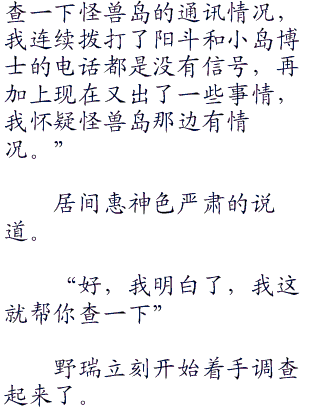 查一下怪兽岛的通讯情况，
我连续拨打了阳斗和小岛博
士的电话都是没有信号，再
加上现在又出了一些事情，
我怀疑怪兽岛那边有情
况。”
居间惠神色严肃的说
道。
“好，我明白了，我这
就帮你查一下”
野瑞立刻开始着手调查
起来了。